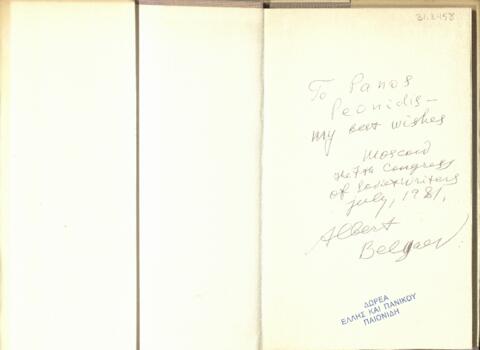 31.2458
To Panos
Peonidis –
my best wishes
Moscow
the 7th Congress
of Soviet Writers
july, 1981.
Albert
Belyaev
ΔΩΡΕΑ
ΕΛΛΗΣ ΚΑΙ ΠΑΝΙΚΟΥ
ΠΑΙΟΝΙΔΗ